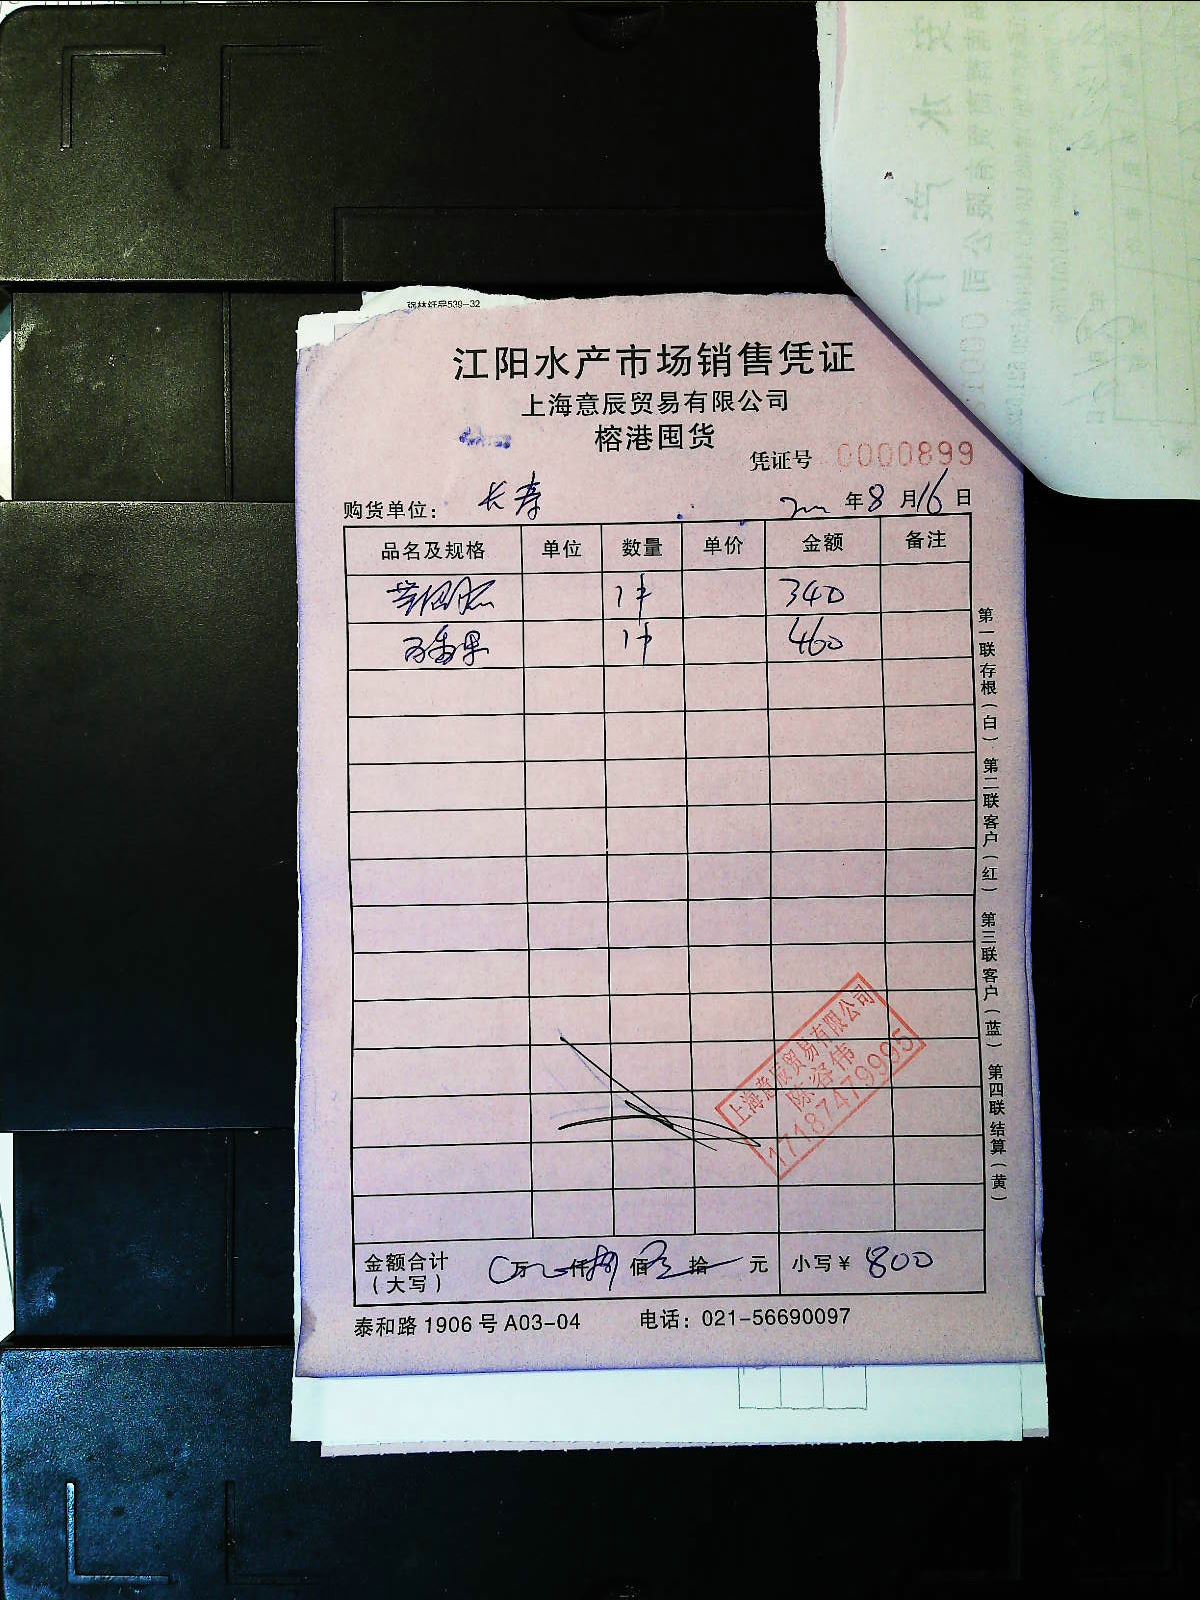 江阳水产市场销售凭证
上海意辰贸易有限公司
榕港囤货
凭证号 0000899
购货单位： 长寿 年8月16日
品名及规格 单位 数量 单价 金额 备注
1件 340
1件 460
第一联存根（白） 第二联客户（红） 第三联客户（蓝） 第四联结算（黄）
上海意辰贸易有限公司
17187479995
金额合计（大写） 万 仟捌佰 拾 元 小写¥ 800
泰和路1906号A03-04 电话：021-56690097